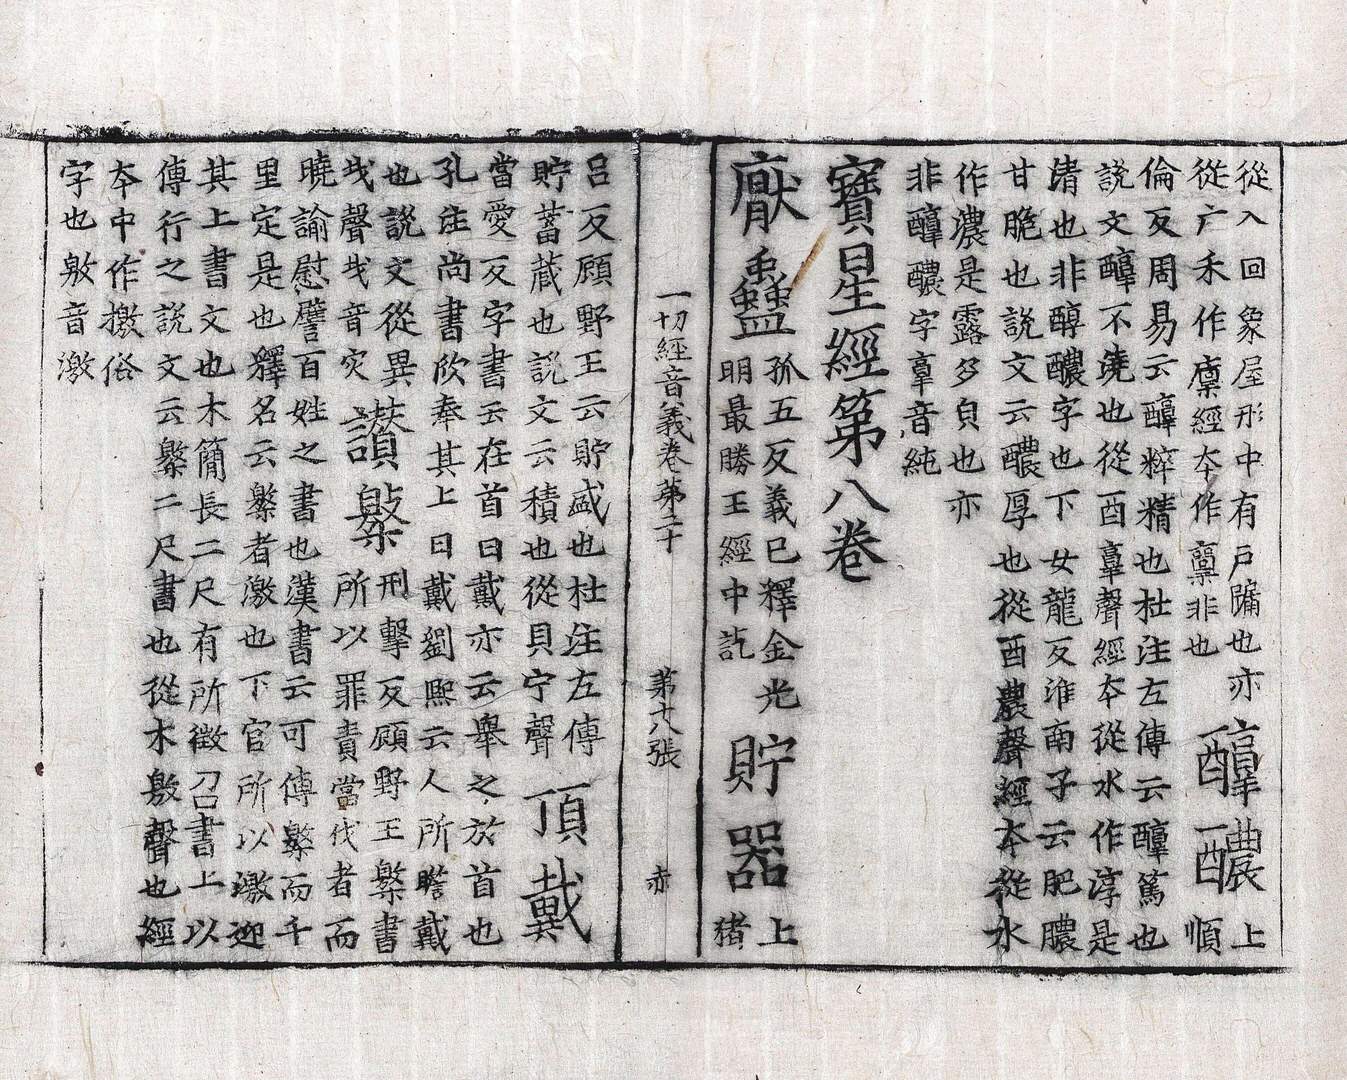 從入回象屋形中有戶牖也亦
從广禾作廩經本作稟非也
醇醲 上
順
倫反周易云醇粹精也杜注左傳云醇篤也
說文醇不澆也從酉𦎧聲經夲從水作淳是
清也非醇醲字也下女龍反淮南子云肥膿
甘脆也說文云醲厚也從酉農聲經夲從水
作濃是露多皃也亦
非醇醲字𦎧音純
寶星經第八卷
厭蠱
孤五反義已釋金光
明最勝王經中訖
貯器 上
猪
一切經音義卷第二十 第十八張 亦
呂反顧野王云貯盛也杜注左傳
貯蓄藏也說文云積也從貝宁聲
頂戴
當愛反字書云在首曰戴亦云舉之於首也
孔注尚書欣奉其上曰戴劉熙云人所瞻戴
也說文從異
𢦏聲𢦏音灾
讃檄
刑擊反顧野王檄書
所以罪責當伐者而
曉諭慰譬百姓之書也漢書云可傳檄而千
里定是也釋名云檄者激也下官所以激迎
其上書文也木簡長二尺有所徵召書上以
傳行之說文云檄二尺書也從木敫聲也經
夲中作撽俗
字也敫音激